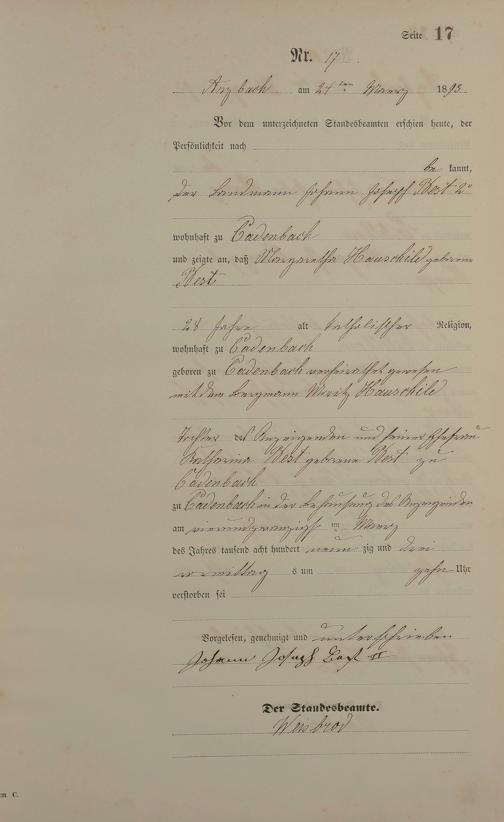 Seite 17
Nr. 17.
Arzbach am 24ten Maerz 1893.
Vor dem unterzeichneten Standesbeamten erschien heute, der
Persönlichkeit nach
be kannt,
der Landmann Johann Joseph Best 2r
wohnhaft zu Cadenbach
und zeigte an, daß Margaretha Hauschild geborene
Best
28 Jahre alt katholischer Religion,
wohnhaft zu Cadenbach
geboren zu Cadenbach verheirathet gewesen
mit dem Bergmann Moritz Hauschild
Tochter des Anzeigenden und seiner Ehefrau
Katharina Best geborene Best zu
Cadenbach
zu Cadenbach in der Behausung des Anzeigenden
am vierundzwanzigsten Maerz
des Jahres tausend acht hundert neun zig und drei
vormittag s um zehn Uhr
verstorben sei
Vorgelesen, genehmigt und unterschrieben
Johann Joseph Best II
Der Standesbeamte.
Weisbrod
C.